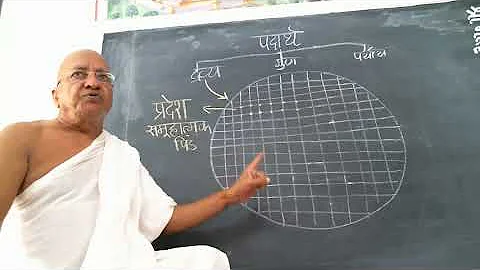 पदार्थ
द्रव्य
गुण
पर्याय
प्रदेश
समूहात्मक
पिंड